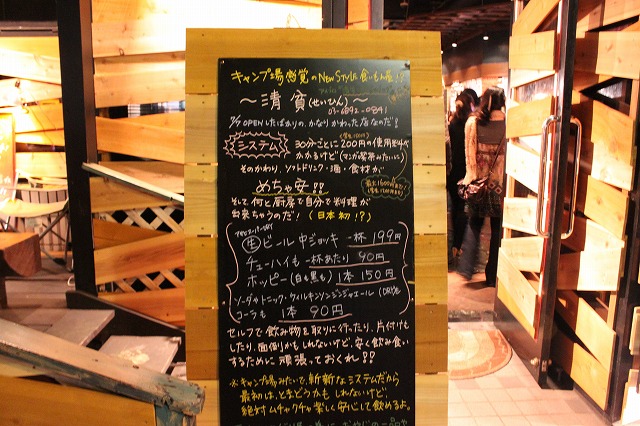 キャンプ場感覚のNew Style 食いもん屋!?
〜清貧(せいひん)〜
03-6892-0841
7/7 OPENしたばかりの、かなりかわった店なのだ!
システム
30分ごとに200円の使用料や
かかるけど(マンガ喫茶みたいに)
そのかわり、ソフトドリンク・酒・食材が
めちゃ安!!
そして何と厨房で自分で料理が
出来ちゃうのだ!(日本初!?)
生ビール中ジョッキ 一杯 199円
チューハイも 一杯あたり 90円
ホッピー(白も黒も) 1本 150円
ソーダ・トニック・ウィルキンソンジンジャエール
コーラも 1本 90円
セルフで飲み物を取りに行ったり、片付けも
したり、面倒かもしれないけど、安く飲み食い
するために 頑張っておくれ!!
※キャンプ場みたいで、斬新なシステムだから
最初は、とまどうかも しれないけど
絶対ムチャクチャ楽しく安心して飲めるよ。